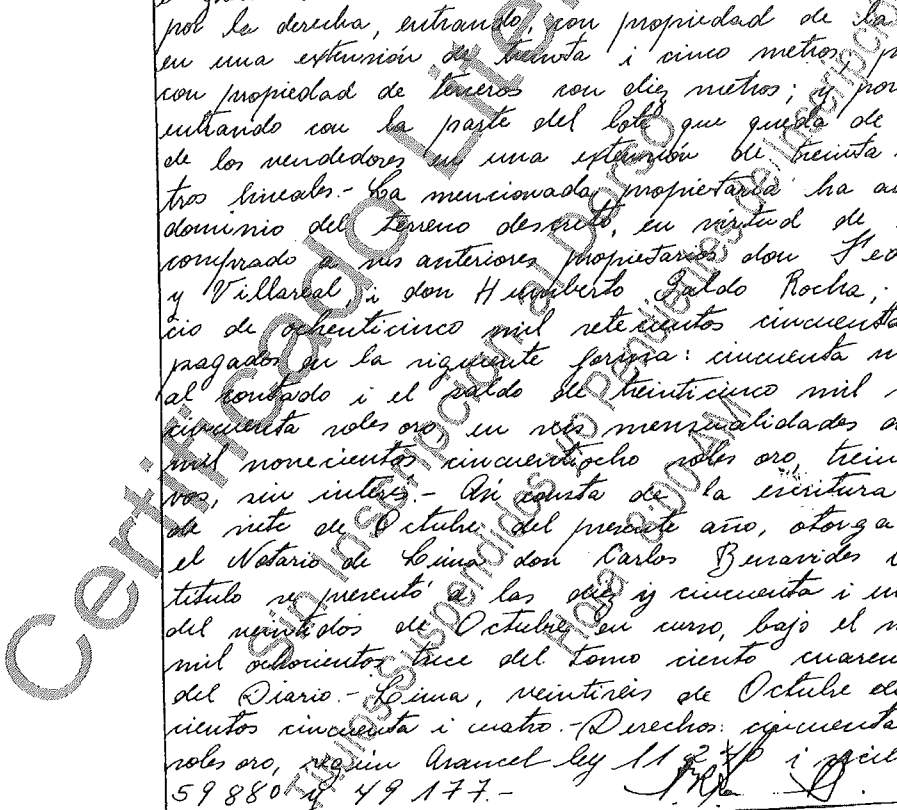 por la derecha, entrando, con propiedad de la
en una extensión de treinta i cinco metros,
con propiedad de terceros con diez metros; y por
entrando con la parte del lote que queda de
de los vendedores en una extensión de treinta
tros lineales.- La mencionada propietaria ha
dominio del terreno descrito, en virtud de
comprado a sus anteriores propietarios don
y Villareal, i don Humberto Galdo Rocha;
cio de ochenticinco mil setecientos cincuenta
pagados en la siguiente forma: cincuenta
al contado i el saldo de treinticinco mil
cincuenta soles oro, en seis mensualidades
mil novecientos cincuentiocho soles oro, trein
vos, sin interés.- Así consta de la escritura
de siete de Octubre del presente año, otorga
el Notario de Lima don Carlos Benavides
título se presentó a las diez y cincuenta i
del veintidos de Octubre en curso, bajo el
mil ochocientos trece del tomo ciento cuaren
del Diario.- Lima, veintiseis de Octubre de
cientos cincuenta i cuatro.- Derechos: cincuenta
soles oro, según Arancel ley 11240 i
59880 y 49177.-
Certificado Liter
Sin Inscripcion al Dorso
Titulos Suspendidos y/o Pendientes de Inscripcion
Hora 8:00 AM